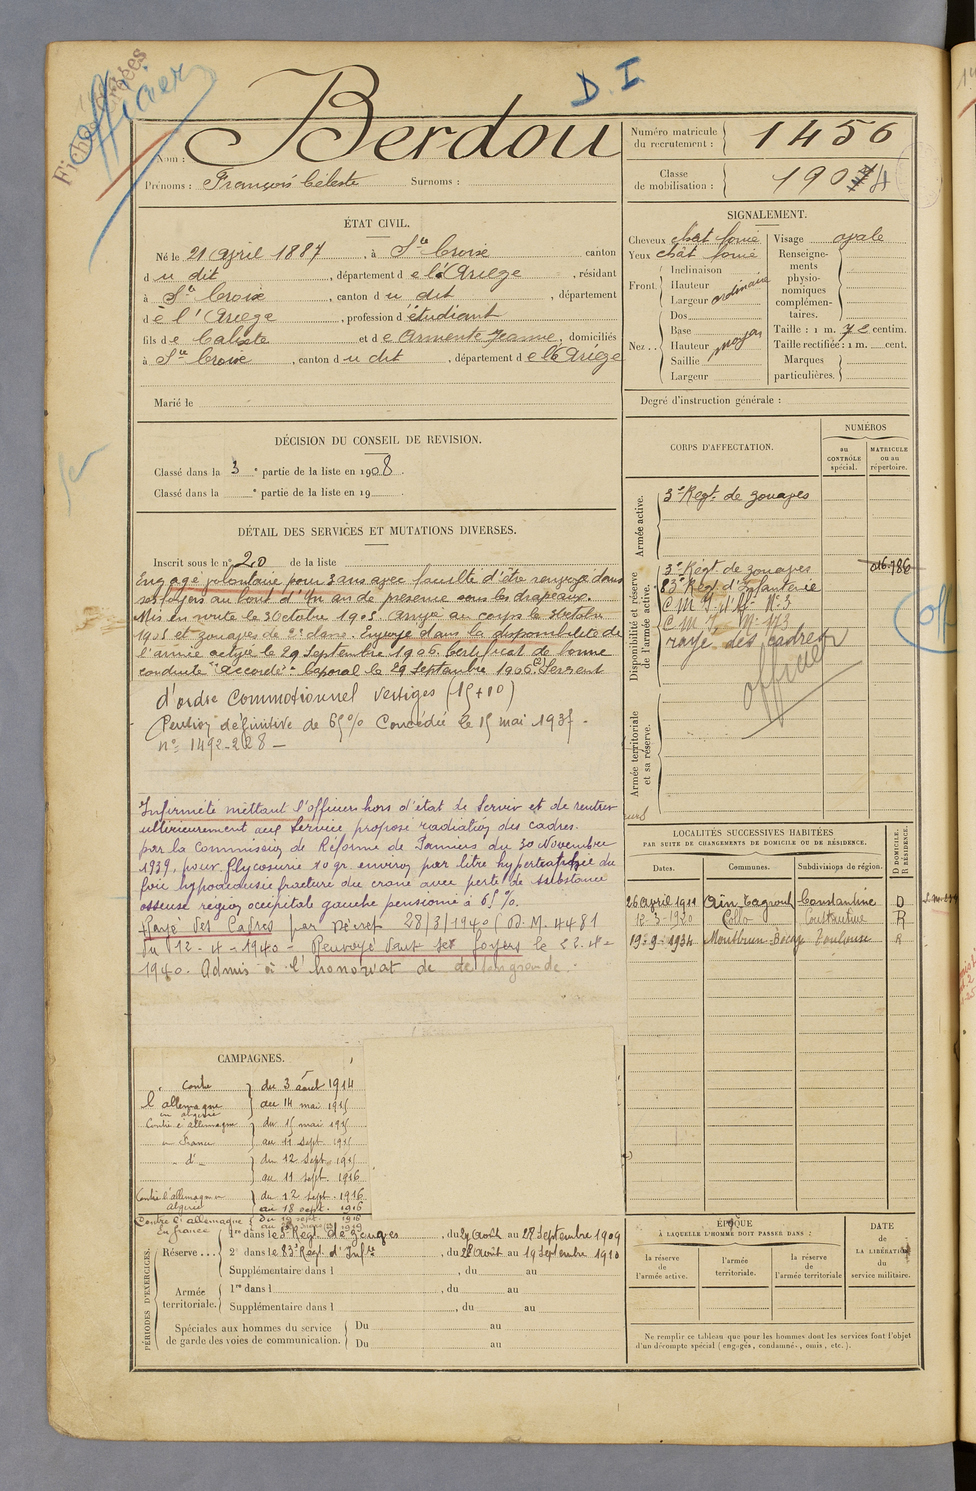 Officier
D. I.
Nom : Berdou
Prénoms : François Céleste Surnoms :
Numéro matricule du recrutement : 1456
Classe de mobilisation : 1904
ÉTAT CIVIL.
Né le 21 avril 1887, à Ste Croix canton
du dit, département de l'Ariège, résidant
à Ste Croix, canton du dit, département
de l'Ariège, profession d'étudiant
fils de Calixte et de Armente Jeanne, domiciliés
à Ste Croix, canton du dit, département de l'Ariège
Marié le
SIGNALEMENT.
Cheveux chât foncé Visage ovale
Yeux chât foncé
Front. Inclinaison
Hauteur
Largeur ordinaire
Nez .. Dos
Base
Hauteur moyen
Saillie
Largeur
Renseignements physionomiques complémentaires.
Taille : 1 m. 72 centim.
Taille rectifiée : 1 m. cent.
Marques particulières.
Degré d'instruction générale :
DÉCISION DU CONSEIL DE REVISION.
Classé dans la 3e partie de la liste en 1908.
Classé dans la e partie de la liste en 19
CORPS D'AFFECTATION.
NUMÉROS
au CONTRÔLE spécial.
MATRICULE ou au répertoire.
Armée active.
3e Régt de zouaves
Disponibilité et réserve de l'armée active.
3e Régt de zouaves 016.786
83e Régt d'Infanterie
C M I N° 3
C M I N° 173
rayé des cadres
officier
Armée territoriale et sa réserve.
DÉTAIL DES SERVICES ET MUTATIONS DIVERSES.
Inscrit sous le n° 20 de la liste
Engagé volontaire pour 3 ans avec faculté d'être renvoyé dans
ses foyers au bout d'un an de présence sous les drapeaux.
Mis en route le 3 Octobre 1905. Arrivé au corps le 3 Octobre
1905 et zouaves de 2e classe. Envoyé dans la disponibilité de
l'armée active le 29 Septembre 1906. Certificat de bonne
conduite "Accordé". Caporal le 29 Septembre 1906. Sergent
d'ordre Commotionnel vertiges (15+10)
Pension définitive de 65% Concédée le 15 mai 1935 -
n° 1492-228 -
Infirmité mettant l'officier hors d'état de Servir et de rentrer
ultérieurement au Service proposé radiation des cadres.
par la Commission de Réforme de Pamiers du 30 Novembre
1939, pour Glycosurie 10 gr. environ par litre hypertrophie du
foie hypoacousie fracture du crane avec perte de substance
osseuse région occipitale gauche pensionné à 65%.
Rayé des Cadres par Décret 28/3/1940 (D.M. 4481
du 12-4-1940 - Renvoyé dans ses foyers le 22-4-
1940. Admis à l'honorariat de
LOCALITÉS SUCCESSIVES HABITÉES
PAR SUITE DE CHANGEMENTS DE DOMICILE OU DE RÉSIDENCE.
D DOMICILE. R RÉSIDENCE.
Dates. Communes. Subdivisions de région.
26 avril 1911 Aïn Tagrout Constantine D
12-3-1920 Collo Constantine R
19-9-1934 Montbrun-Bocage Toulouse R
CAMPAGNES.
Contre l'allemagne en algérie du 3 août 1914
au 14 mai 1915
Contre l'allemagne en France du 15 mai 1915
au 11 sept. 1915
- d° - du 12 sept. 1915
au 11 sept. 1916
Contre l'allemagne en algérie du 12 sept. 1916
au 18 sept. 1916
Contre l'allemagne en france du 19 sept. 1916
PÉRIODES D'EXERCICES.
Réserve ... 1re dans le 3e Régt de Zouaves, du 24 août au 28 Septembre 1909
2e dans le 83e Régt d'Infie, du 28 Août au 19 Septembre 1910
Supplémentaire dans l , du au
Armée territoriale. 1re dans l , du au
Supplémentaire dans l , du au
Spéciales aux hommes du service de garde des voies de communication. Du au
Du au
ÉPOQUE
À LAQUELLE L'HOMME DOIT PASSER DANS :
la réserve de l'armée active.
l'armée territoriale.
la réserve de l'armée territoriale
DATE de LA LIBÉRATION du service militaire.
Ne remplir ce tableau que pour les hommes dont les services font l'objet
d'un décompte spécial (engagés, condamnés, omis, etc.).